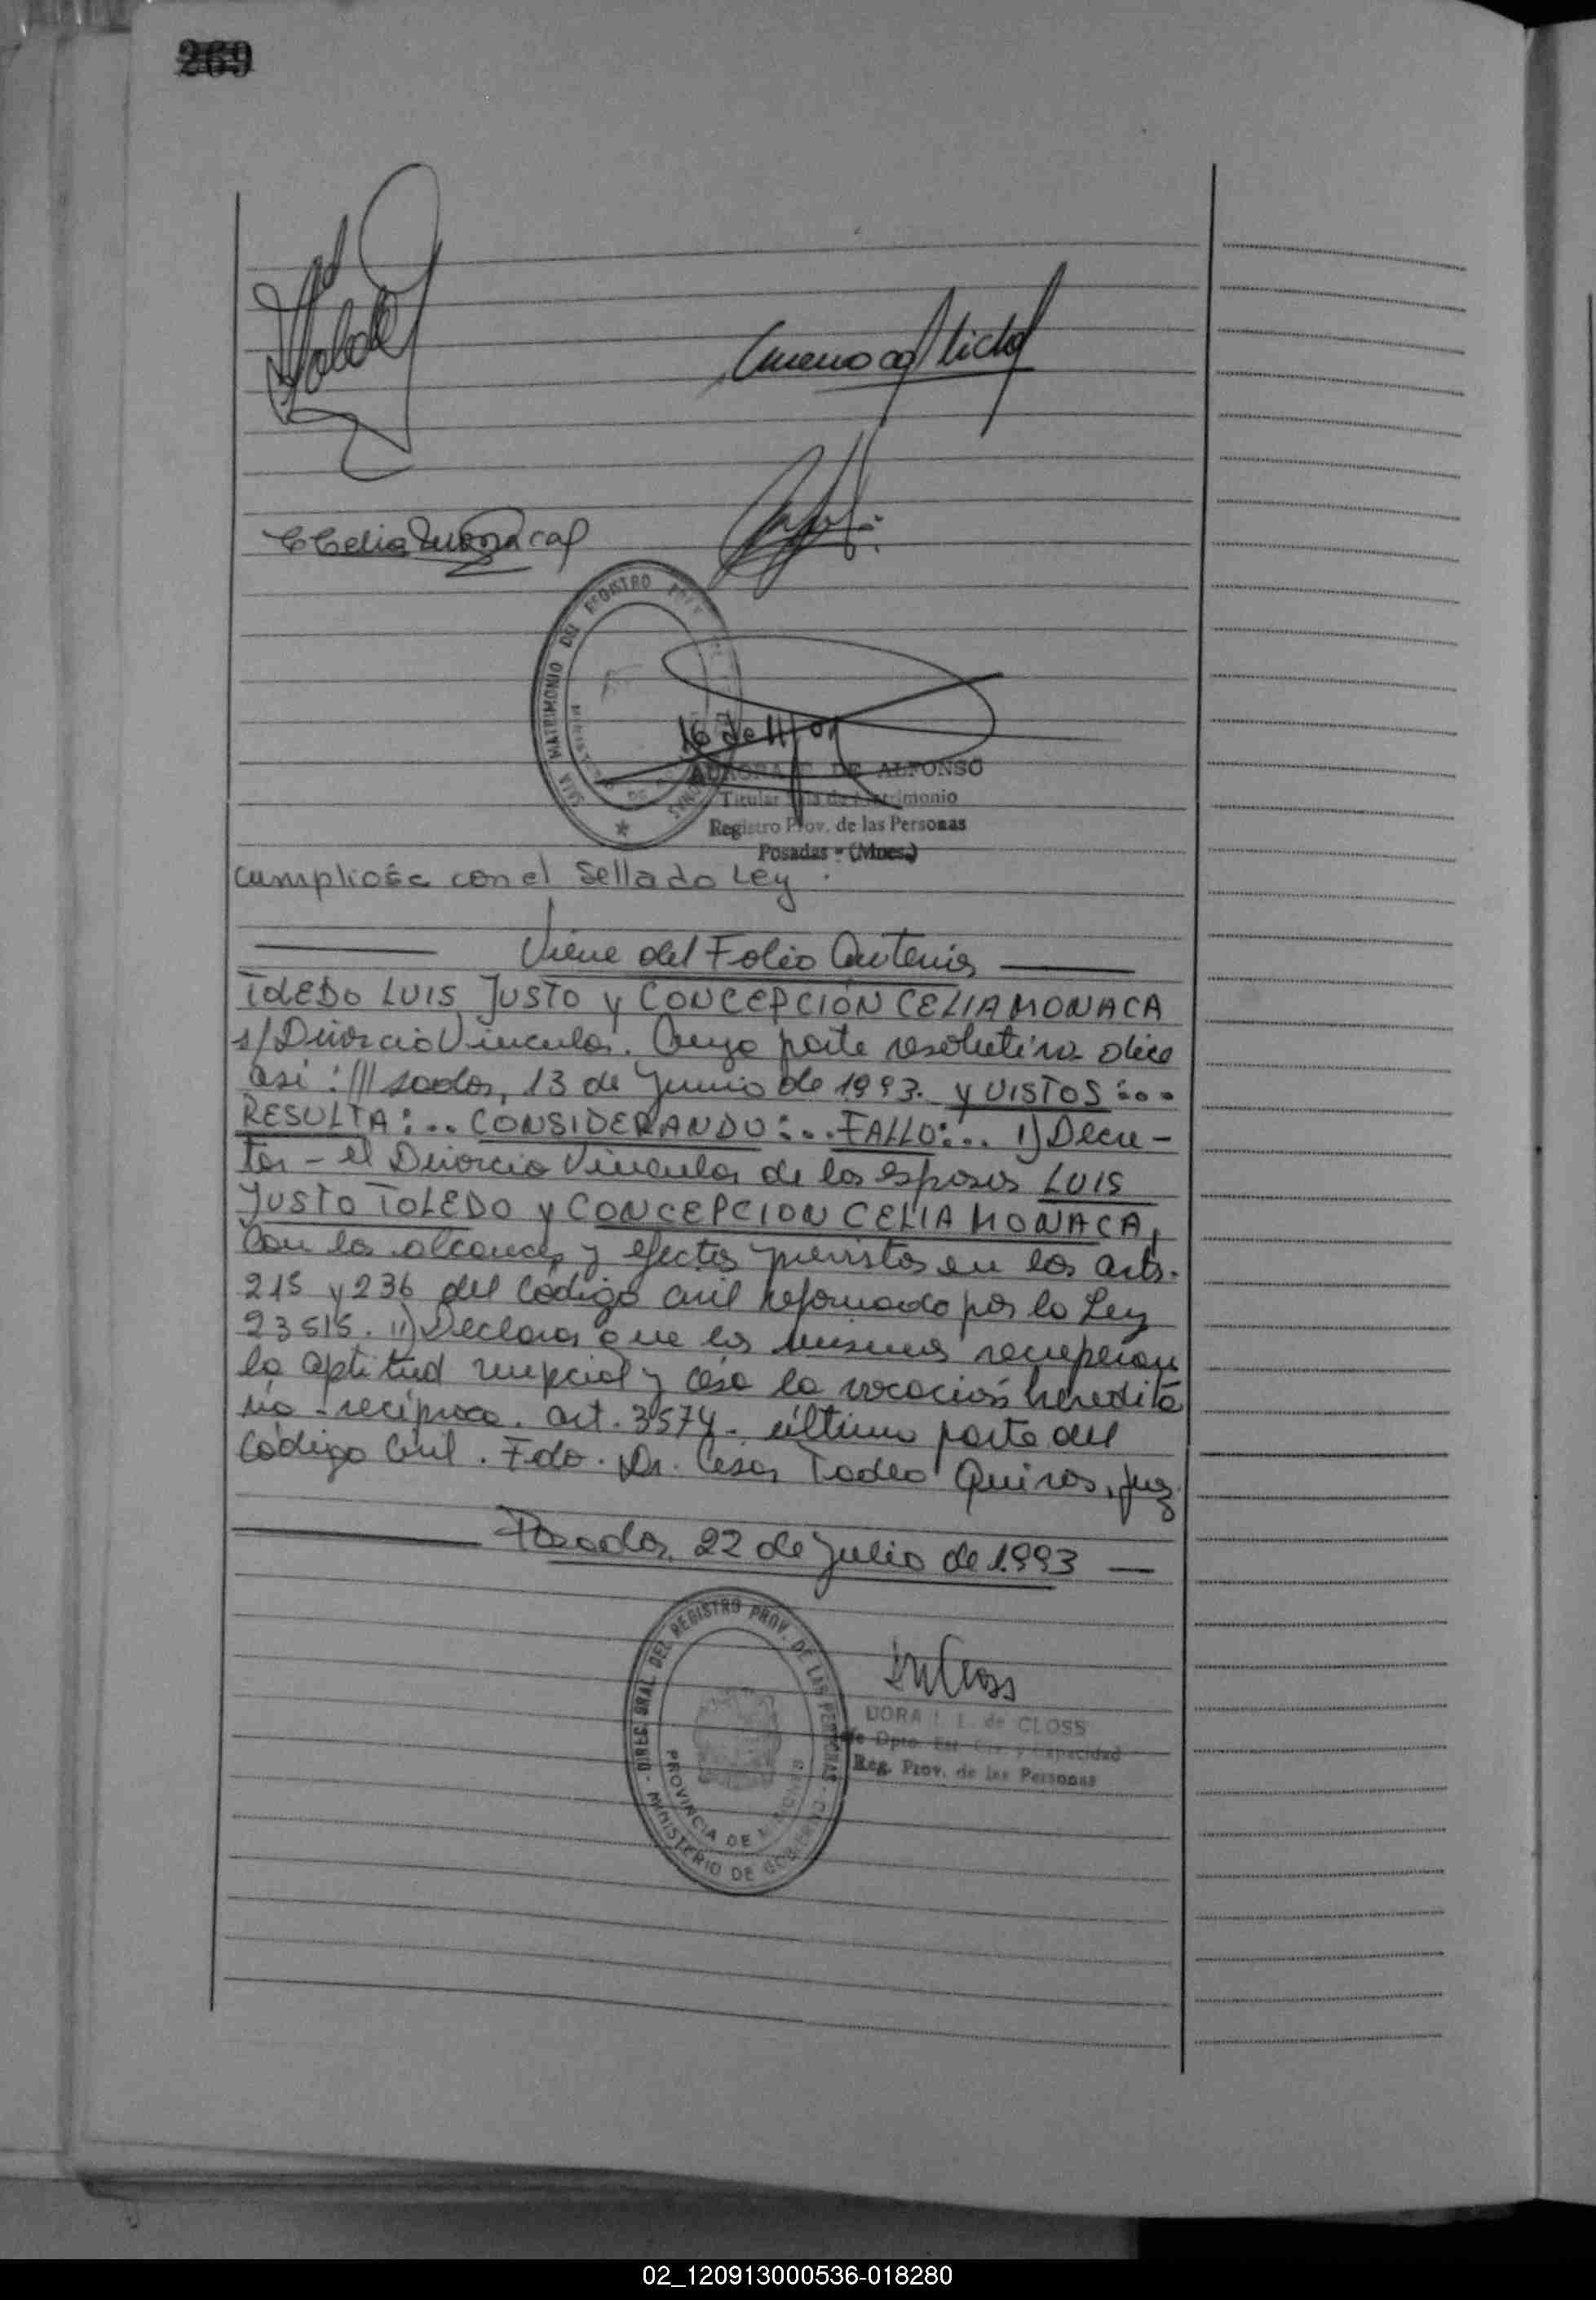 269
CCelia Monaca
SALA MATRIMONIO DEL REGISTRO PROV
16 de 11/01
AURORA DE ALFONSO
Titular Sala de Matrimonio
Registro Prov. de las Personas
Posadas - (Mnes.)
Cumpliose con el Sellado Ley.
Viene del Folio Anterior
TOLEDO LUIS JUSTO y CONCEPCIÓN CELIA MONACA
s/Divorcio Vincular. Cuya parte resolutiva dice
así: ///sadas, 13 de Junio de 1993. y VISTOS:...
RESULTA:... CONSIDERANDO:... FALLO:... I) Decre-
tar - el Divorcio Vincular de los esposos LUIS
JUSTO TOLEDO y CONCEPCION CELIA MONACA,
Con los alcances y efectos previstos en los arts.
215 y 236 del Código Civil reformado por la Ley
23515. II) Declarar que los mismos recuperan
la aptitud nupcial y cesa la vocación heredita
ria - recíproca. art. 3574 - última parte del
Código Civil. Fdo. Dr. Cesar Tadeo Quiros, Juez.
Posadas, 22 de Julio de 1993
DIREC. GRAL. DEL REGISTRO PROV. DE LAS PERSONAS - MINISTERIO DE GOBIERNO
PROVINCIA DE MISIONES
DORA I. L. de CLOSS
Jefe Dpto. Est. Civ. y Capacidad
Reg. Prov. de las Personas
02_120913000536-018280